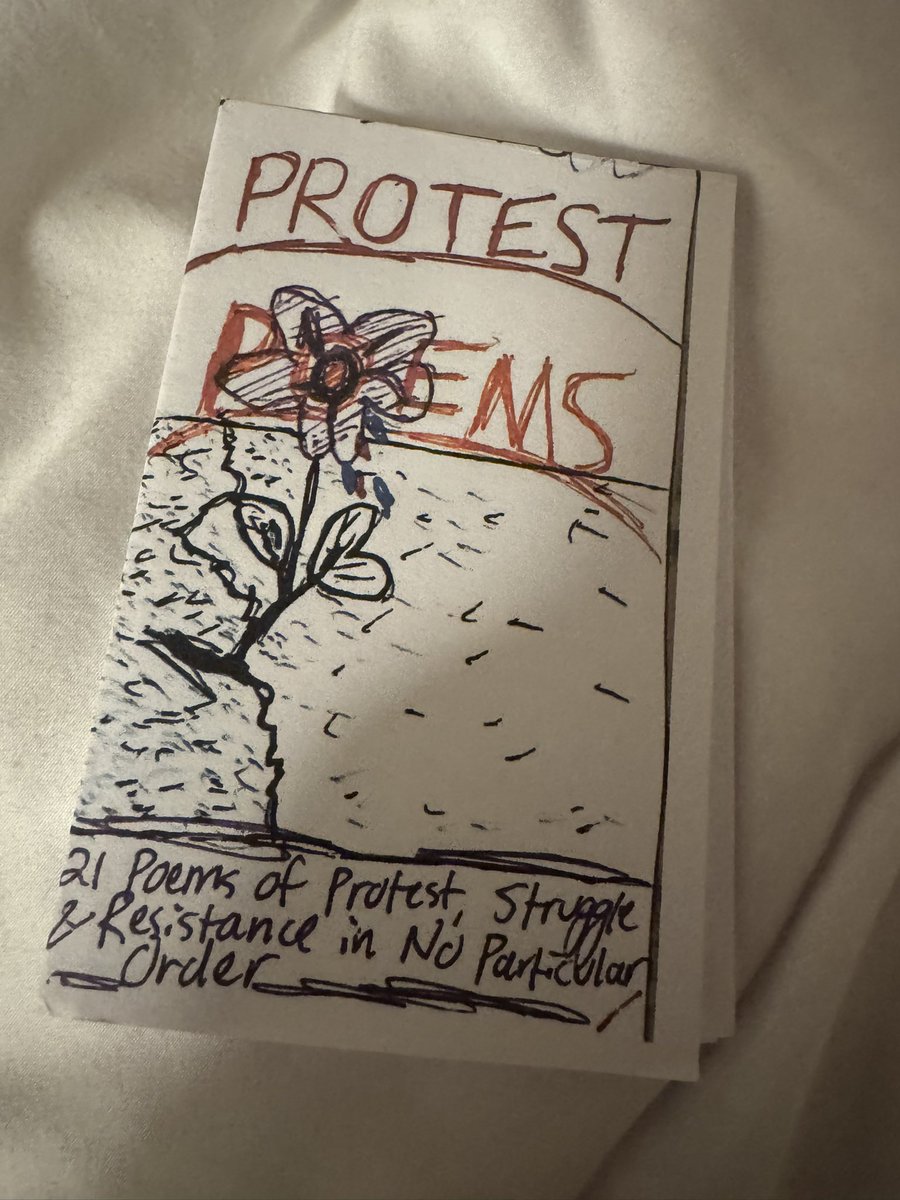 PROTEST
POEMS
21 Poems of Protest, Struggle
& Resistance in No Particular
Order